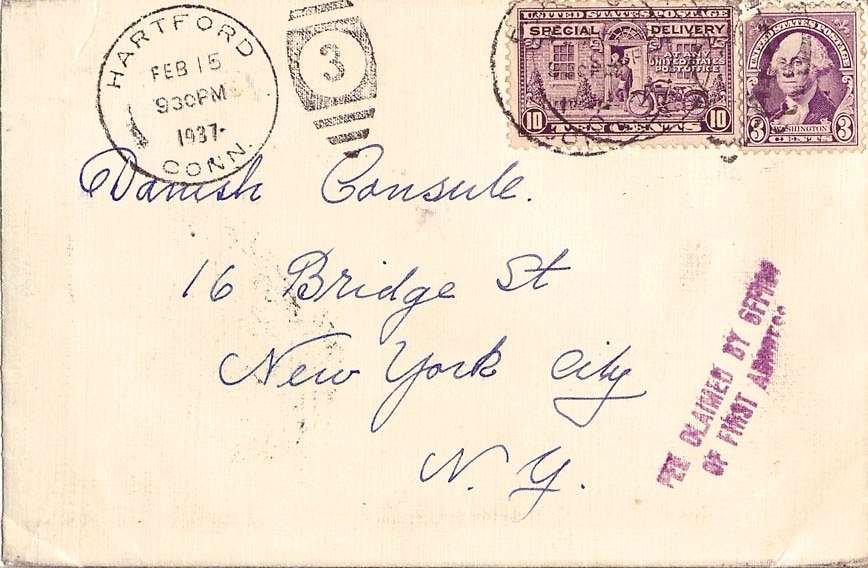 HARTFORD
FEB 15
930PM
1937
CONN.
3
UNITED STATES POSTAGE
SPECIAL DELIVERY
AT ANY
UNITED STATES
POST OFFICE
10 TEN CENTS 10
UNITED STATES POSTAGE
3 WASHINGTON 3
CENTS
Danish Consule.
16 Bridge St
New York City
N. Y.
FEE CLAIMED BY OFFICE
OF FIRST ADDRESS